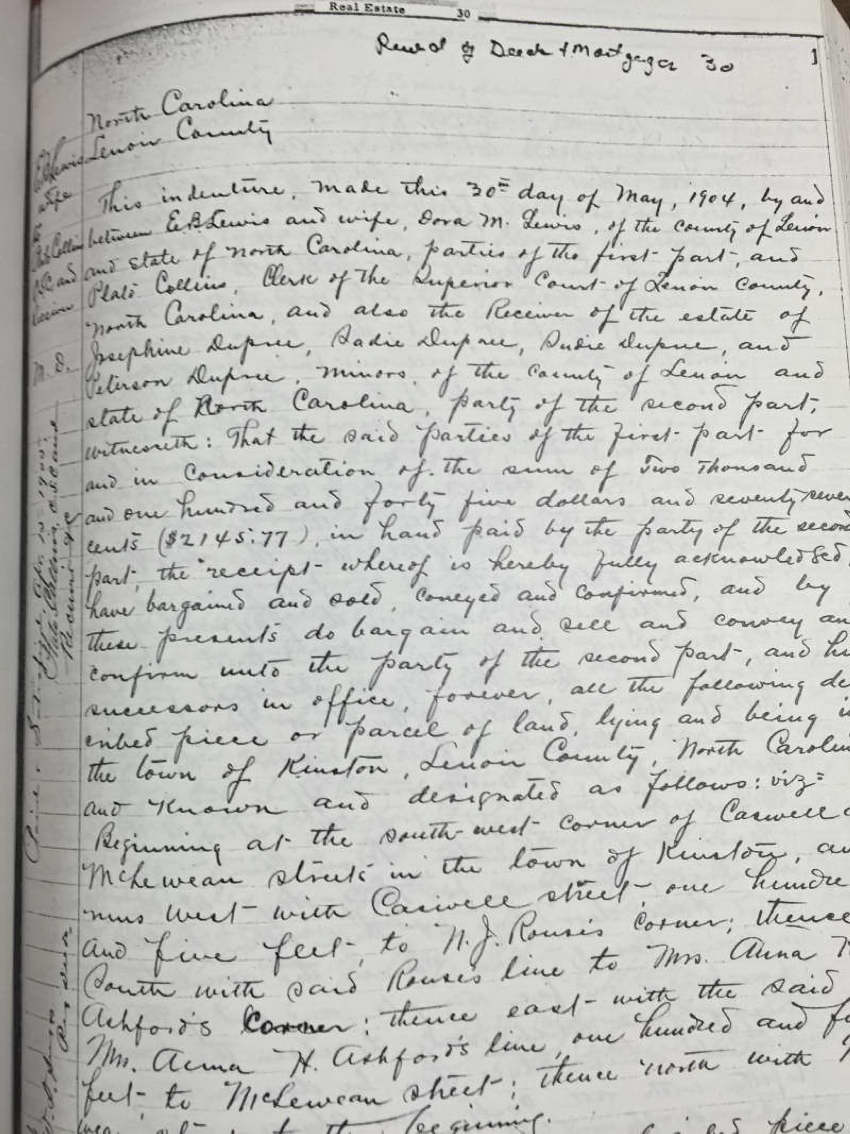 Real Estate 30
Record of Deeds & Mortgages 30
1
North Carolina
Lenoir County
This indenture, made this 30th day of May, 1904, by and
between E.B. Lewis and wife, Dora M. Lewis, of the county of Lenoir
and state of North Carolina, parties of the first part, and
Plato Collins, Clerk of the Superior Court of Lenoir County,
North Carolina, and also the Receiver of the estate of
Josephine Dupree, Sadie Dupree, Sudie Dupree, and
Peterson Dupree, minors, of the county of Lenoir and
state of North Carolina, party of the second part,
witnesseth: That the said parties of the first part for
and in consideration of the sum of Two Thousand
and one hundred and forty five dollars and seventy seven
cents ($2145.77), in hand paid by the party of the second
part, the receipt whereof is hereby fully acknowledged,
have bargained and sold, conveyed and confirmed, and by
these presents do bargain and sell and convey an
confirm unto the party of the second part, and hi
successors in office, forever, all the following de
cribed piece or parcel of land, lying and being i
the town of Kinston, Lenoir County, North Carolin
and known and designated as follows: viz=
Beginning at the south-west corner of Caswell a
McLewean streets in the town of Kinston, an
runs West with Caswell street, one hundre
and five feet, to N.J. Rouse's corner; thence
South with said Rouse's line to Mrs. Anna H
Ashford's corner; thence east with the said
Mrs. Anna H. Ashford's line, one hundred and fi
feet, to McLewean street; thence north with M
beginning.
piece
E.B. Lewis
wife
to
Plato Collins
C.S.C. and
Receiver
M. D.